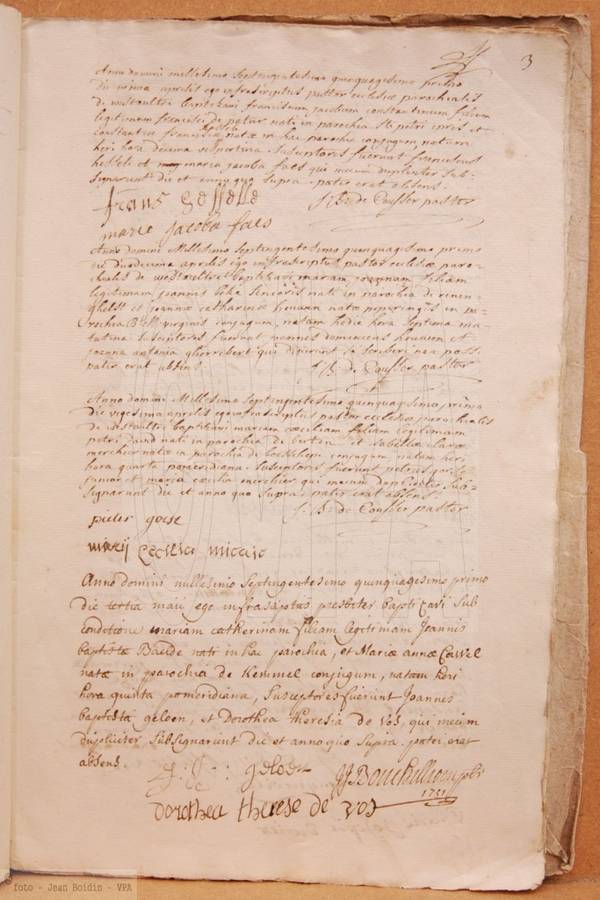 3
Anno domini millesimo septingentesimo quinquagesimo primo
die prima aprilis ego infrascriptus pastor ecclesiæ parochialis
de westoutter baptizavi franciscum jacobum constantinum filium
legitimum francisci de nati in parochia Sti petri ipris et
constantiæ franciscæ natæ in hac parochia conjugum natum
heri hora decima vespertina. Susceptores fuerunt franciscus
hesselle et maria jacoba faes qui mecum dupliciter sub-
signarunt die et anno quo supra. pater erat absens.
frans hesselle
J: B: de Cuyser pastor
marie jacoba faes
Anno domini Millesimo septingentesimo quinquagesimo primo
die duodecima aprilis ego infrascriptus pastor ecclesiæ paro-
chialis de westoutter baptizavi mariam joannam filiam
legitimam joannis nati in parochia de renin-
ghelst et joannæ catharinæ houaen natæ poperingis in pa-
rochia B: M: virginis conjugum, natam hodie hora septima ma-
tutina. Susceptores fuerunt joannes domenicus houaen et
joanna antonia qui dixerunt se scribere non posse.
pater erat absens.
J: B: de Cuyser pastor
Anno domini Millesimo Septingentesimo quinquagesimo primo
die vigesima aprilis ego infrascriptus pastor ecclesiæ parochialis
de westoutter baptizavi mariam cæciliam filiam legitimam
petri david nati in parochia de berten et isabellæ claræ
merchier natæ in parochia de conjugum, natam heri
hora quarta pomeridiana. Susceptores fuerunt petrus
junior et maria cæcilia merchier qui mecum dupliciter sub-
signarunt die et anno quo supra. pater erat absens.
J: B: de Cuyser pastor
pieter goese
marij cecilia
Anno domini millesimo septingentesimo quinquagesimo primo
die tertia maii ego infrascriptus presbiter baptizavi sub
conditione mariam catherinam filiam legitimam Joannis
baptistæ Baelde nati in hac parochia, et Mariæ annæ Cawel
natæ in parochia de Kemmel conjugum, natam heri
hora quinta pomeridiana, Susceptores fuerunt Joannes
baptista geloen, et Dorothea theresia de vos, qui mecum
dupliciter subsignarunt die et anno quo supra. pater erat
absens.
1751
dorothea therese de vos
foto - Jean Boidin - VPA